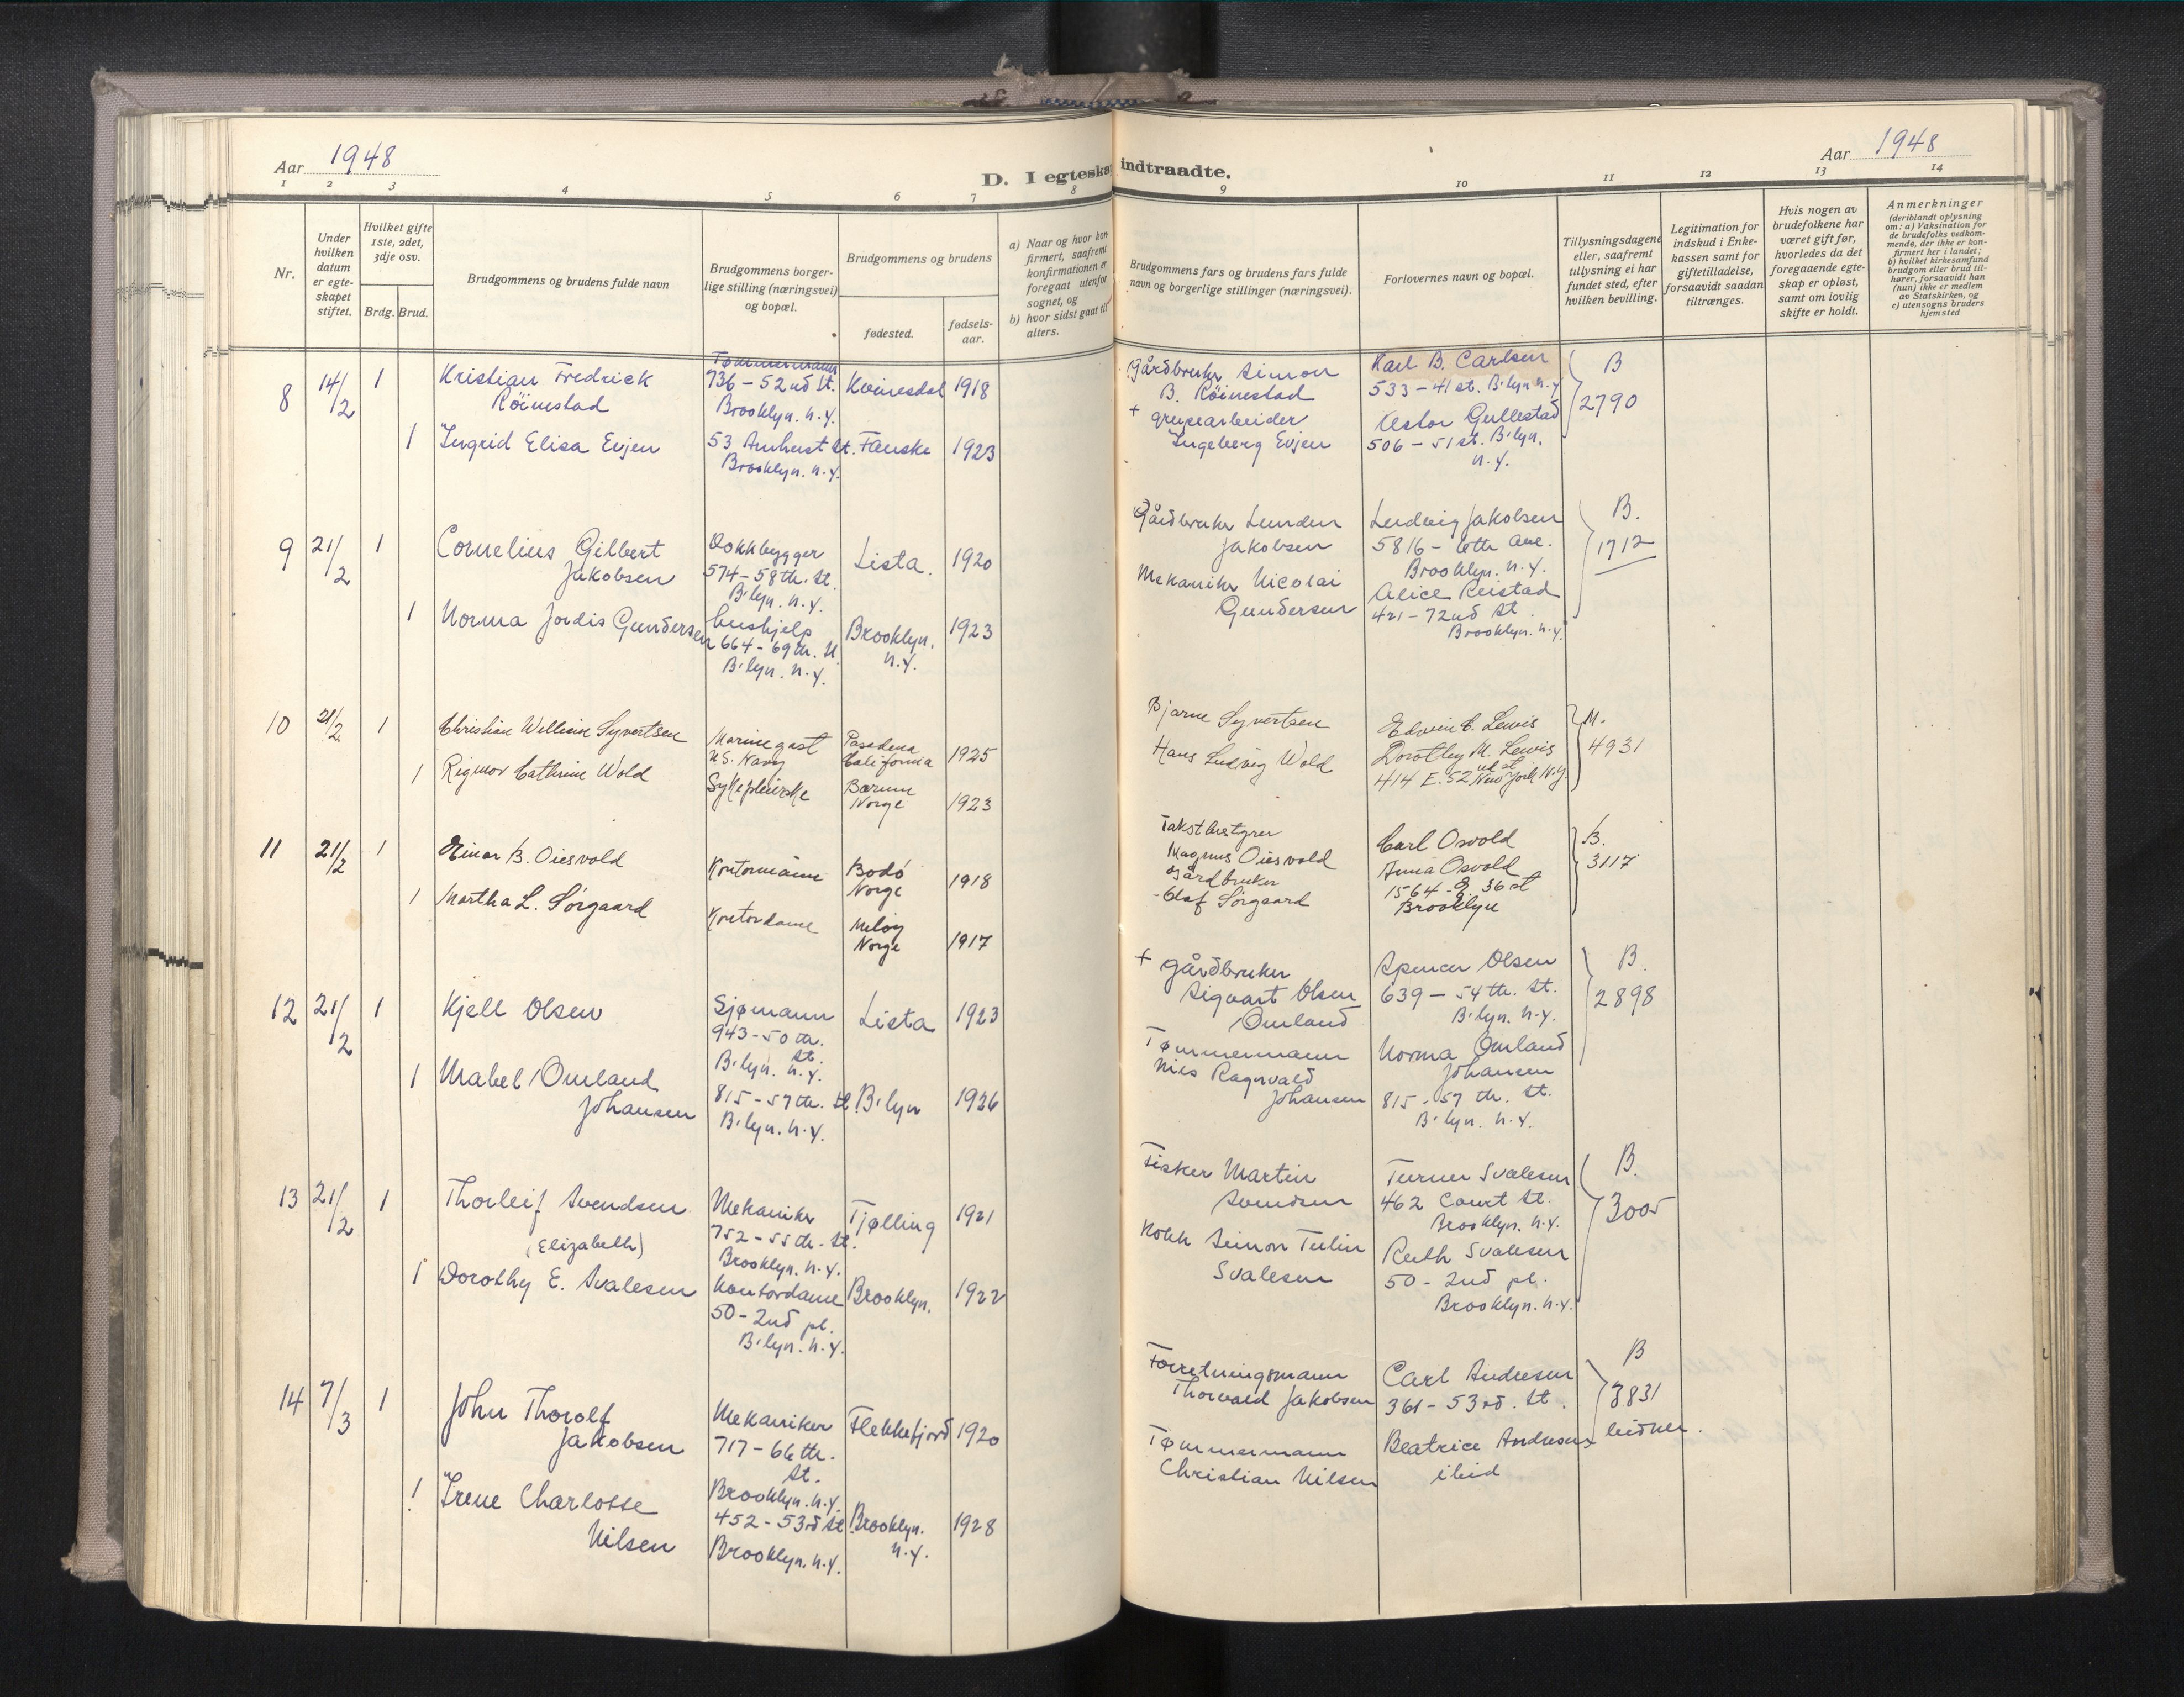 Aar 1948
D. I egteskap indtraadte.
Aar 1948
1 2 3 4 5 6 7 8 9 10 11 12 13 14
Nr.
Under hvilken datum er egte-skapet stiftet.
Hvilket gifte 1ste, 2det, 3dje osv.
Brdg. Brud.
Brudgommens og brudens fulde navn
Brudgommens borger-lige stilling (næringsvei) og bopæl.
Brudgommens og brudens
fødested.
fødsels-aar.
a) Naar og hvor kon-firmert, saafremt konfirmationen er foregaat utenfor sognet, og
b) hvor sidst gaat til alters.
Brudgommens fars og brudens fars fulde navn og borgerlige stillinger (næringsvei).
Forlovernes navn og bopæl.
Tillysningsdagene eller, saafremt tillysning ei har fundet sted, efter hvilken bevilling.
Legitimation for indskud i Enke-kassen samt for giftetilladelse, forsaavidt saadan tiltrænges.
Hvis nogen av brudefolkene har været gift før, hvorledes da det foregaaende egte-skap er opløst, samt om lovlig skifte er holdt.
Anmerkninger
(deriblandt oplysning om: a) Vaksination for de brudefolks vedkom-mende, der ikke er kon-firmert her i landet; b) hvilket kirkesamfund brudgom eller brud til-hører, forsaavidt han (hun) ikke er medlem av Statskirken, og c) utensogns bruders hjemsted
8 14/2 1 Kristian Fredrick
Röinestad
Tømmermann
736 - 52nd St.
Brooklyn. N.Y.
Kvinesdal 1918
Gårdbruker Simon
B. Röinestad
Karl B. Carlsen
533 - 41 st. B'lyn N.Y
B
2790
1 Ingrid Elisa Evjen
53 Amherst St.
Brooklyn. N.Y.
Fauske 1923
+ gruvearbeider
Ingeberg Evjen
Nestor Gullestad
506 - 51 st. B'lyn.
N.Y.
9 21/2 1 Cornelius Gilbert
Jakobsen
Dokkbygger
574 - 58th. St.
B'lyn. N.Y.
Lista. 1920
Gårdbruker Lunden
Jakobsen
Ludvig Jakobsen
5816 - 6th Ave.
Brooklyn. N.Y.
B.
1712
1 Norma Jordis Gundersen
hushjelp
664 - 69th. St.
B'lyn. N.Y.
Brooklyn. N.Y. 1923
Mekaniker Nicolai
Gundersen
Alice Reistad
421 - 72nd St.
Brooklyn. N.Y.
10 21/2 1 Christian William Syvertsen
Marinegast
US. Navy
Pasadena
California 1925
Bjarne Syvertsen
Edwin C. Lewis
M.
4931
1 Rigmor Cathrine Wold
Sykepleierske
Bærum
Norge 1923
Hans Ludvig Wold
Dorothy M. Lewis
414 E. 52 nd st New York N.Y.
11 21/2 1 Einar B. Oiesvold
Kontormann
Bodö
Norge 1918
Takstbestyrer
Magnus Oiesvold
Carl Osvold
B.
3117
1 Martha L. Sörgaard
Kontordame
Meløy
Norge 1917
Gårdbruker
Olaf Sörgaard
Anna Osvold
1564 - E. 36 st
Brooklyn
12 21/2 1 Kjell Olsen
Sjømann
943 - 50th. St.
B'lyn. N.Y.
Lista 1923
+ gårdbruker
Sigvart Olsen
Omland
Spencer Olsen
639 - 54th. St.
B'lyn. N.Y.
B.
2898
1 Mabel Omland
Johansen
815 - 57th. St.
B'lyn. N.Y.
B'lyn 1926
Tømmermann
Nils Ragnvald
Johansen
Norma Omland
Johansen
815 - 57 th. St.
B'lyn. N.Y.
13 21/2 1 Thorleif Svendsen
Mekaniker
752 - 55th. St.
Brooklyn. N.Y.
Tjølling 1921
Fisker Martin
Svendsen
Turner Svalesen
462 Court St.
Brooklyn. N.Y.
B.
3005
(Elizabeth)
1 Dorothy E. Svalesen
Kontordame
50 - 2nd pl.
B'lyn. N.Y.
Brooklyn. 1922
Kokk Simon Tulin
Svalesen
Ruth Svalesen
50 - 2nd pl.
Brooklyn. N.Y.
14 7/3 1 John Thorolf
Jakobsen
Mekaniker
717 - 66th. St.
Brooklyn. N.Y.
Flekkefjord 1920
Forretningsmann
Thorvald Jakobsen
Carl Andresen
361 - 53rd. St.
B
3831
1 Irene Charlotte
Nilsen
452 - 53rd St
Brooklyn. N.Y.
Brooklyn. N.Y. 1928
Tømmermann
Christian Nilsen
Beatrice Andresen
ibid